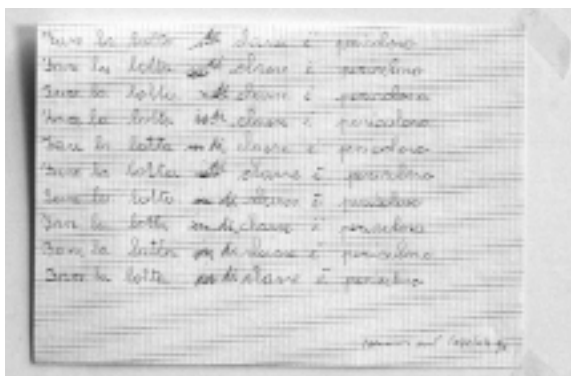 Fare la lotta di classe è pericoloso
Fare la lotta di classe è pericoloso
Fare la lotta di classe è pericoloso
Fare la lotta di classe è pericoloso
Fare la lotta di classe è pericoloso
Fare la lotta di classe è pericoloso
Fare la lotta di classe è pericoloso
Fare la lotta di classe è pericoloso
Fare la lotta di classe è pericoloso
Fare la lotta di classe è pericoloso